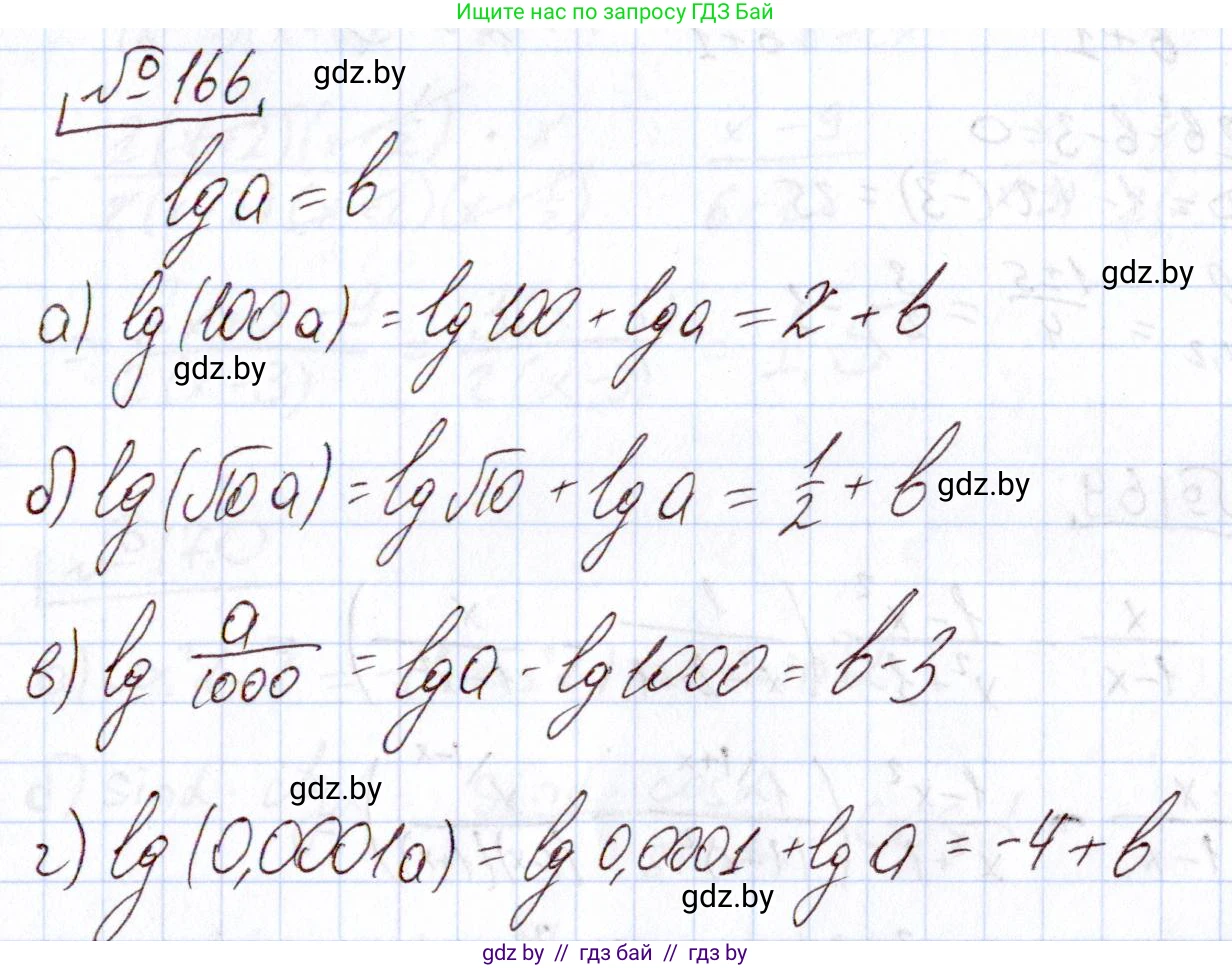 Ищите нас по запросу ГДЗ Бай
№ 166 gdz.by
lg a = b
а) lg(100a) = lg 100 + lg a = 2 + b gdz.by
gdz.by
б) lg(√10 a) = lg √10 + lg a = 1/2 + b gdz.by
в) lg a/1000 = lg a - lg 1000 = b - 3
gdz.by
г) lg (0,0001a) = lg 0,0001 + lg a = -4 + b
gdz.by
gdz by // гдз бай // гдз by